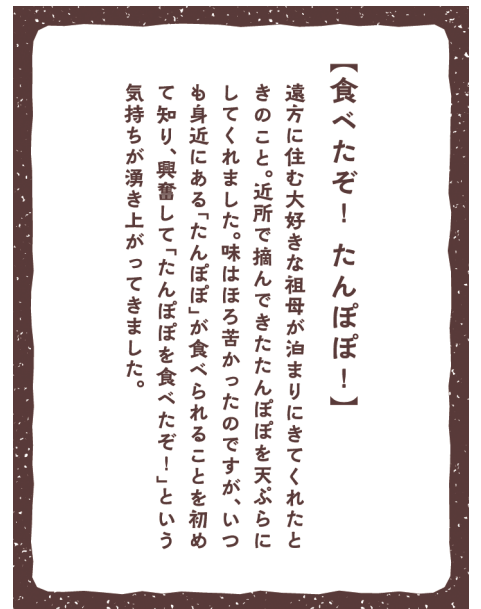 【食べたぞ！ たんぽぽ！】
遠方に住む大好きな祖母が泊まりにきてくれたと
きのこと。近所で摘んできたたんぽぽを天ぷらに
してくれました。味はほろ苦かったのですが、いつ
も身近にある「たんぽぽ」が食べられることを初め
て知り、興奮して「たんぽぽを食べたぞ！」という
気持ちが湧き上がってきました。